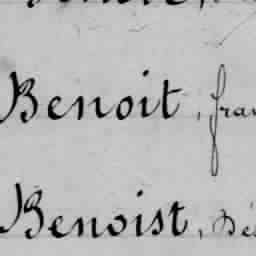 Benoit, fran
Benoist, Dés